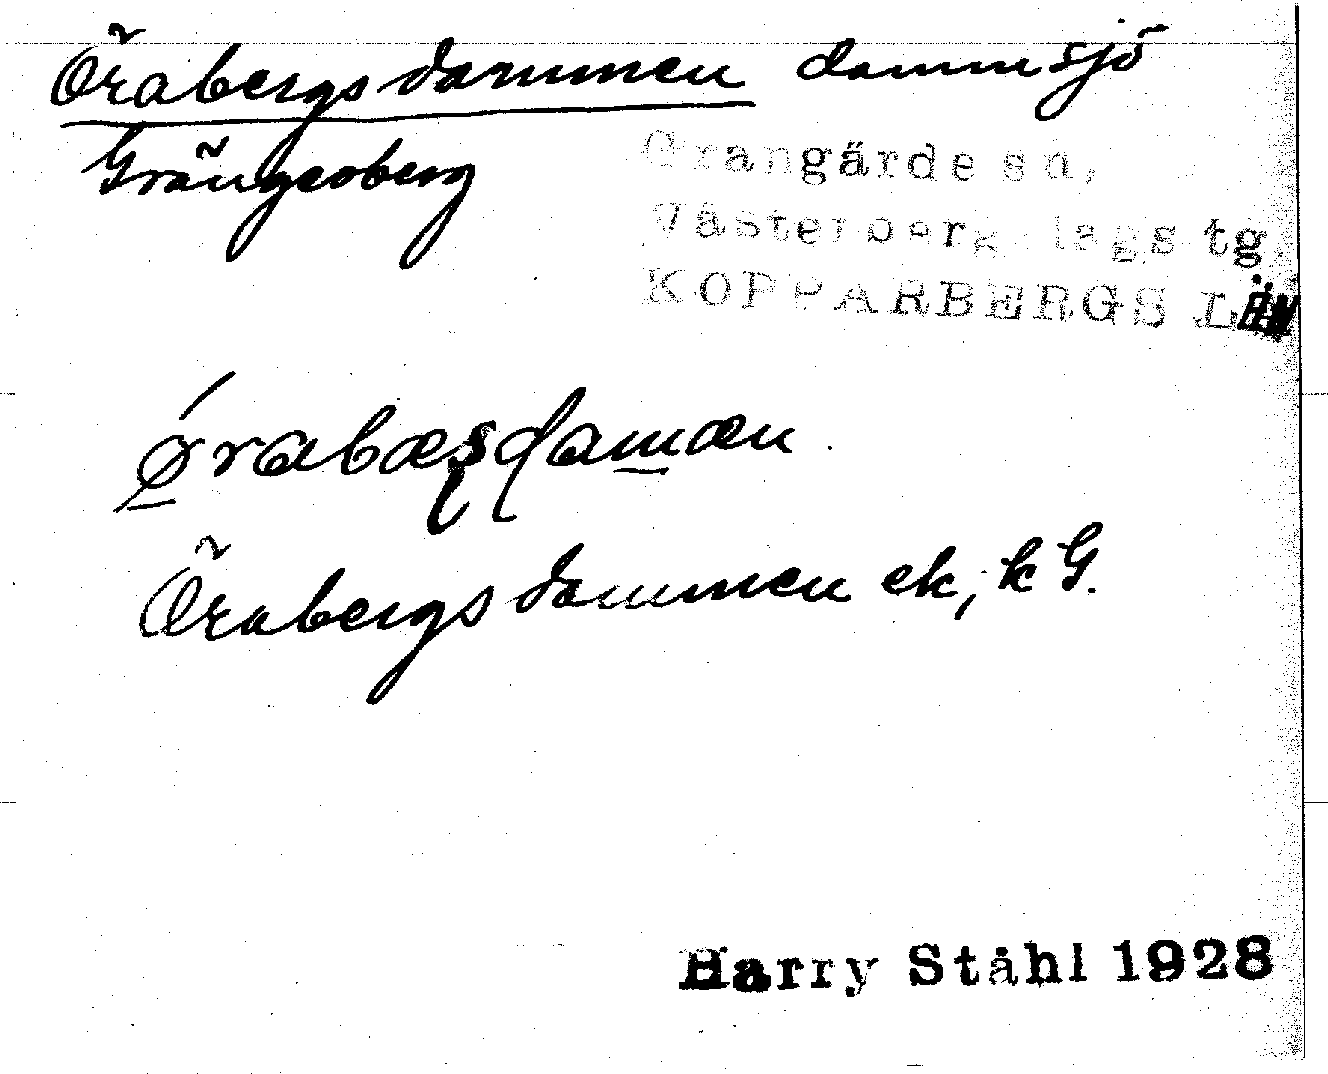 Örabergsdammen dammsjö
Grängesberg
Grangärde sn,
Västerbergslags tg,
KOPPARBERGS LÄN
Örabergsdammen ek, k G.
Harry Ståhl 1928